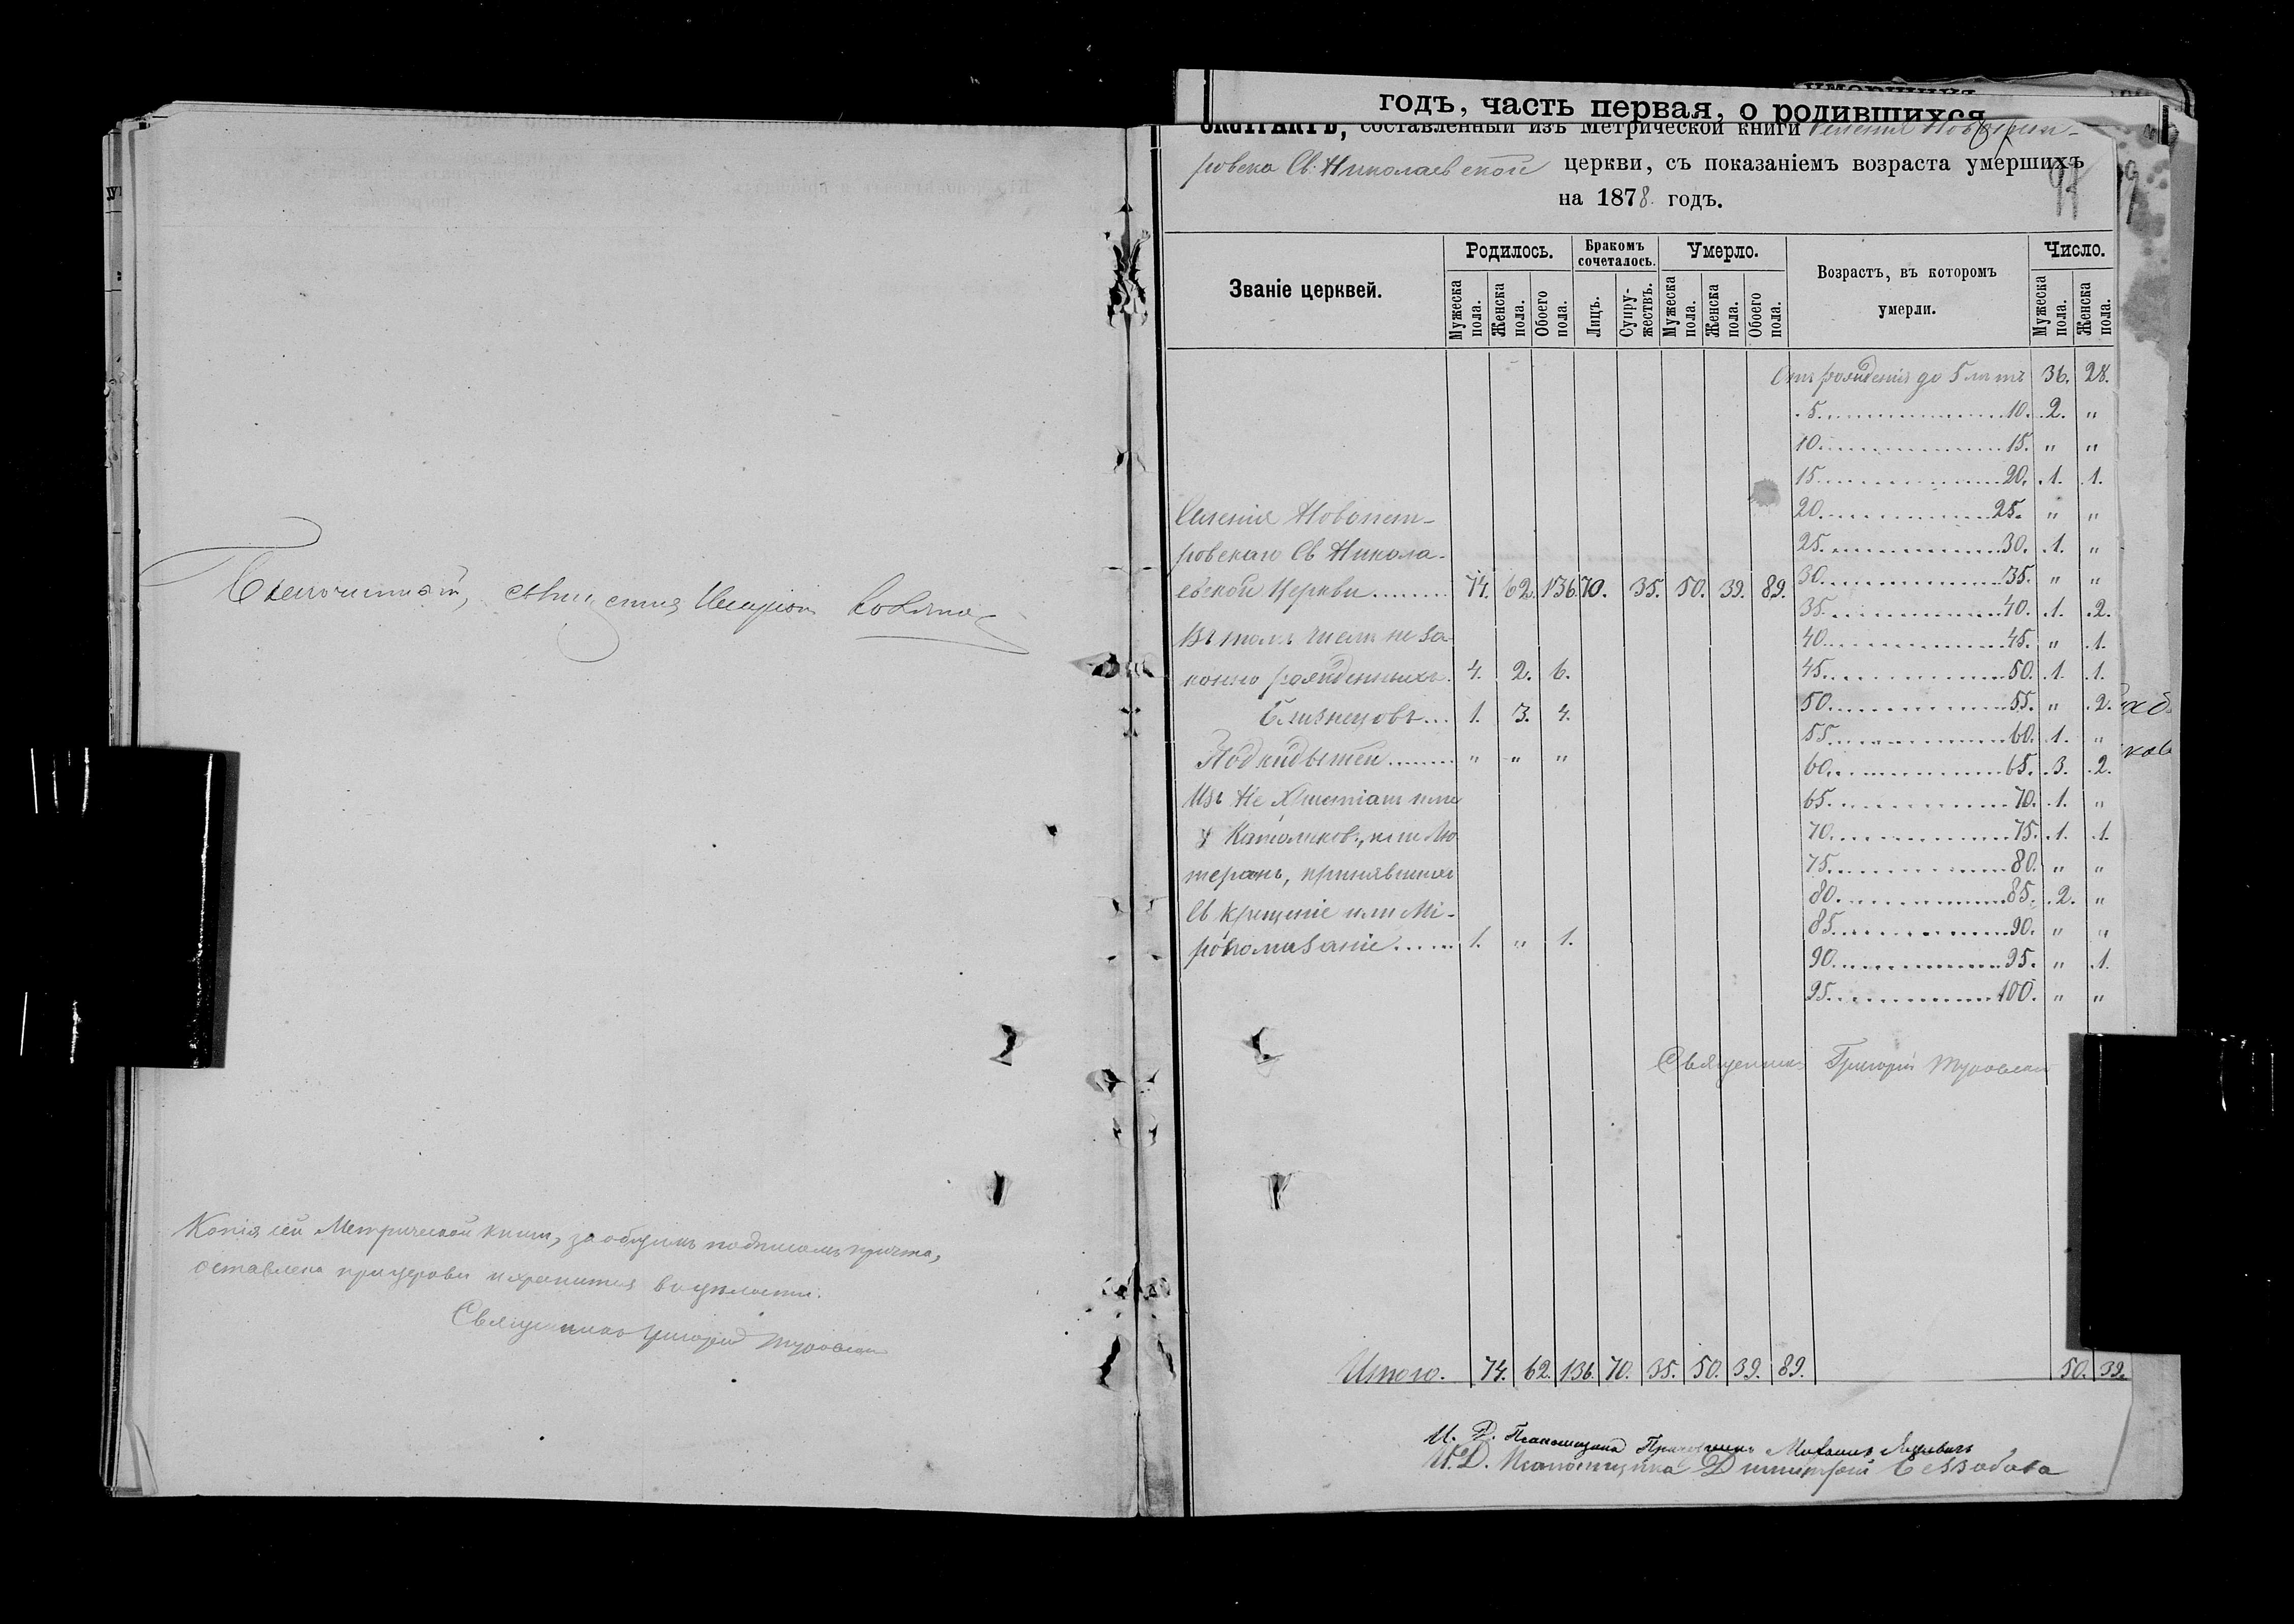 Благочинный, священникъ
Копія сей Метрической книги, за общимъ подписомъ причта,
оставлена при церкви и хранится въ цѣлости.
Священникъ Григорій Туровскій
годъ, часть первая, о родившихся
ЭКСТРАКТЪ, составленный изъ метрической книги Селенія Новопет-
ровска Св: Николаевской церкви, съ показаніемъ возраста умершихъ
на 1878 годъ.
Званіе церквей.
Родилось.
Бракомъ сочеталось.
Умерло.
Возрастъ, въ которомъ умерли.
Число.
Мужеска пола.
Женска пола.
Обоего пола.
Лицъ.
Супружествъ.
Мужеска пола.
Женска пола.
Обоего пола.
Мужеска пола.
Женска пола.
Селенія Новопет-
ровскаго Св Никола-
евской Церкви........ 74. 62. 136. 70. 35. 50. 39. 89.
Въ томъ числѣ неза-
конно рожденныхъ. 4. 2. 6.
Близнецовъ... 1. 3. 4.
Подкидышей........ " " "
Изъ Не Христіанъ или
Католиковъ, или Лю
теранъ, принявшихъ
Св Крещеніе или Мі-
ропомазаніе...... 1. " 1.
Отъ рожденія до 5 лѣтъ 36. 28.
5. 10. 2. "
10. 15. " "
15. 20. 1. 1.
20. 25. " "
25. 30. 1. "
30. 35. " "
35. 40. 1. 2.
40. 45. " 1.
45. 50. 1. 1.
50. 55. " 2.
55. 60. 1. "
60. 65. 3. 2.
65. 70. 1. "
70. 75. 1. 1.
75. 80. " "
80. 85. 2. "
85. 90. " "
90. 95. " 1.
95. 100. " "
Священникъ Григорій Туровскій
Итого. 74. 62. 136. 70. 35. 50. 39. 89. 50. 39.
И. Д. Псаломщика Михаилъ
И. Д. Псаломщика Димитрій